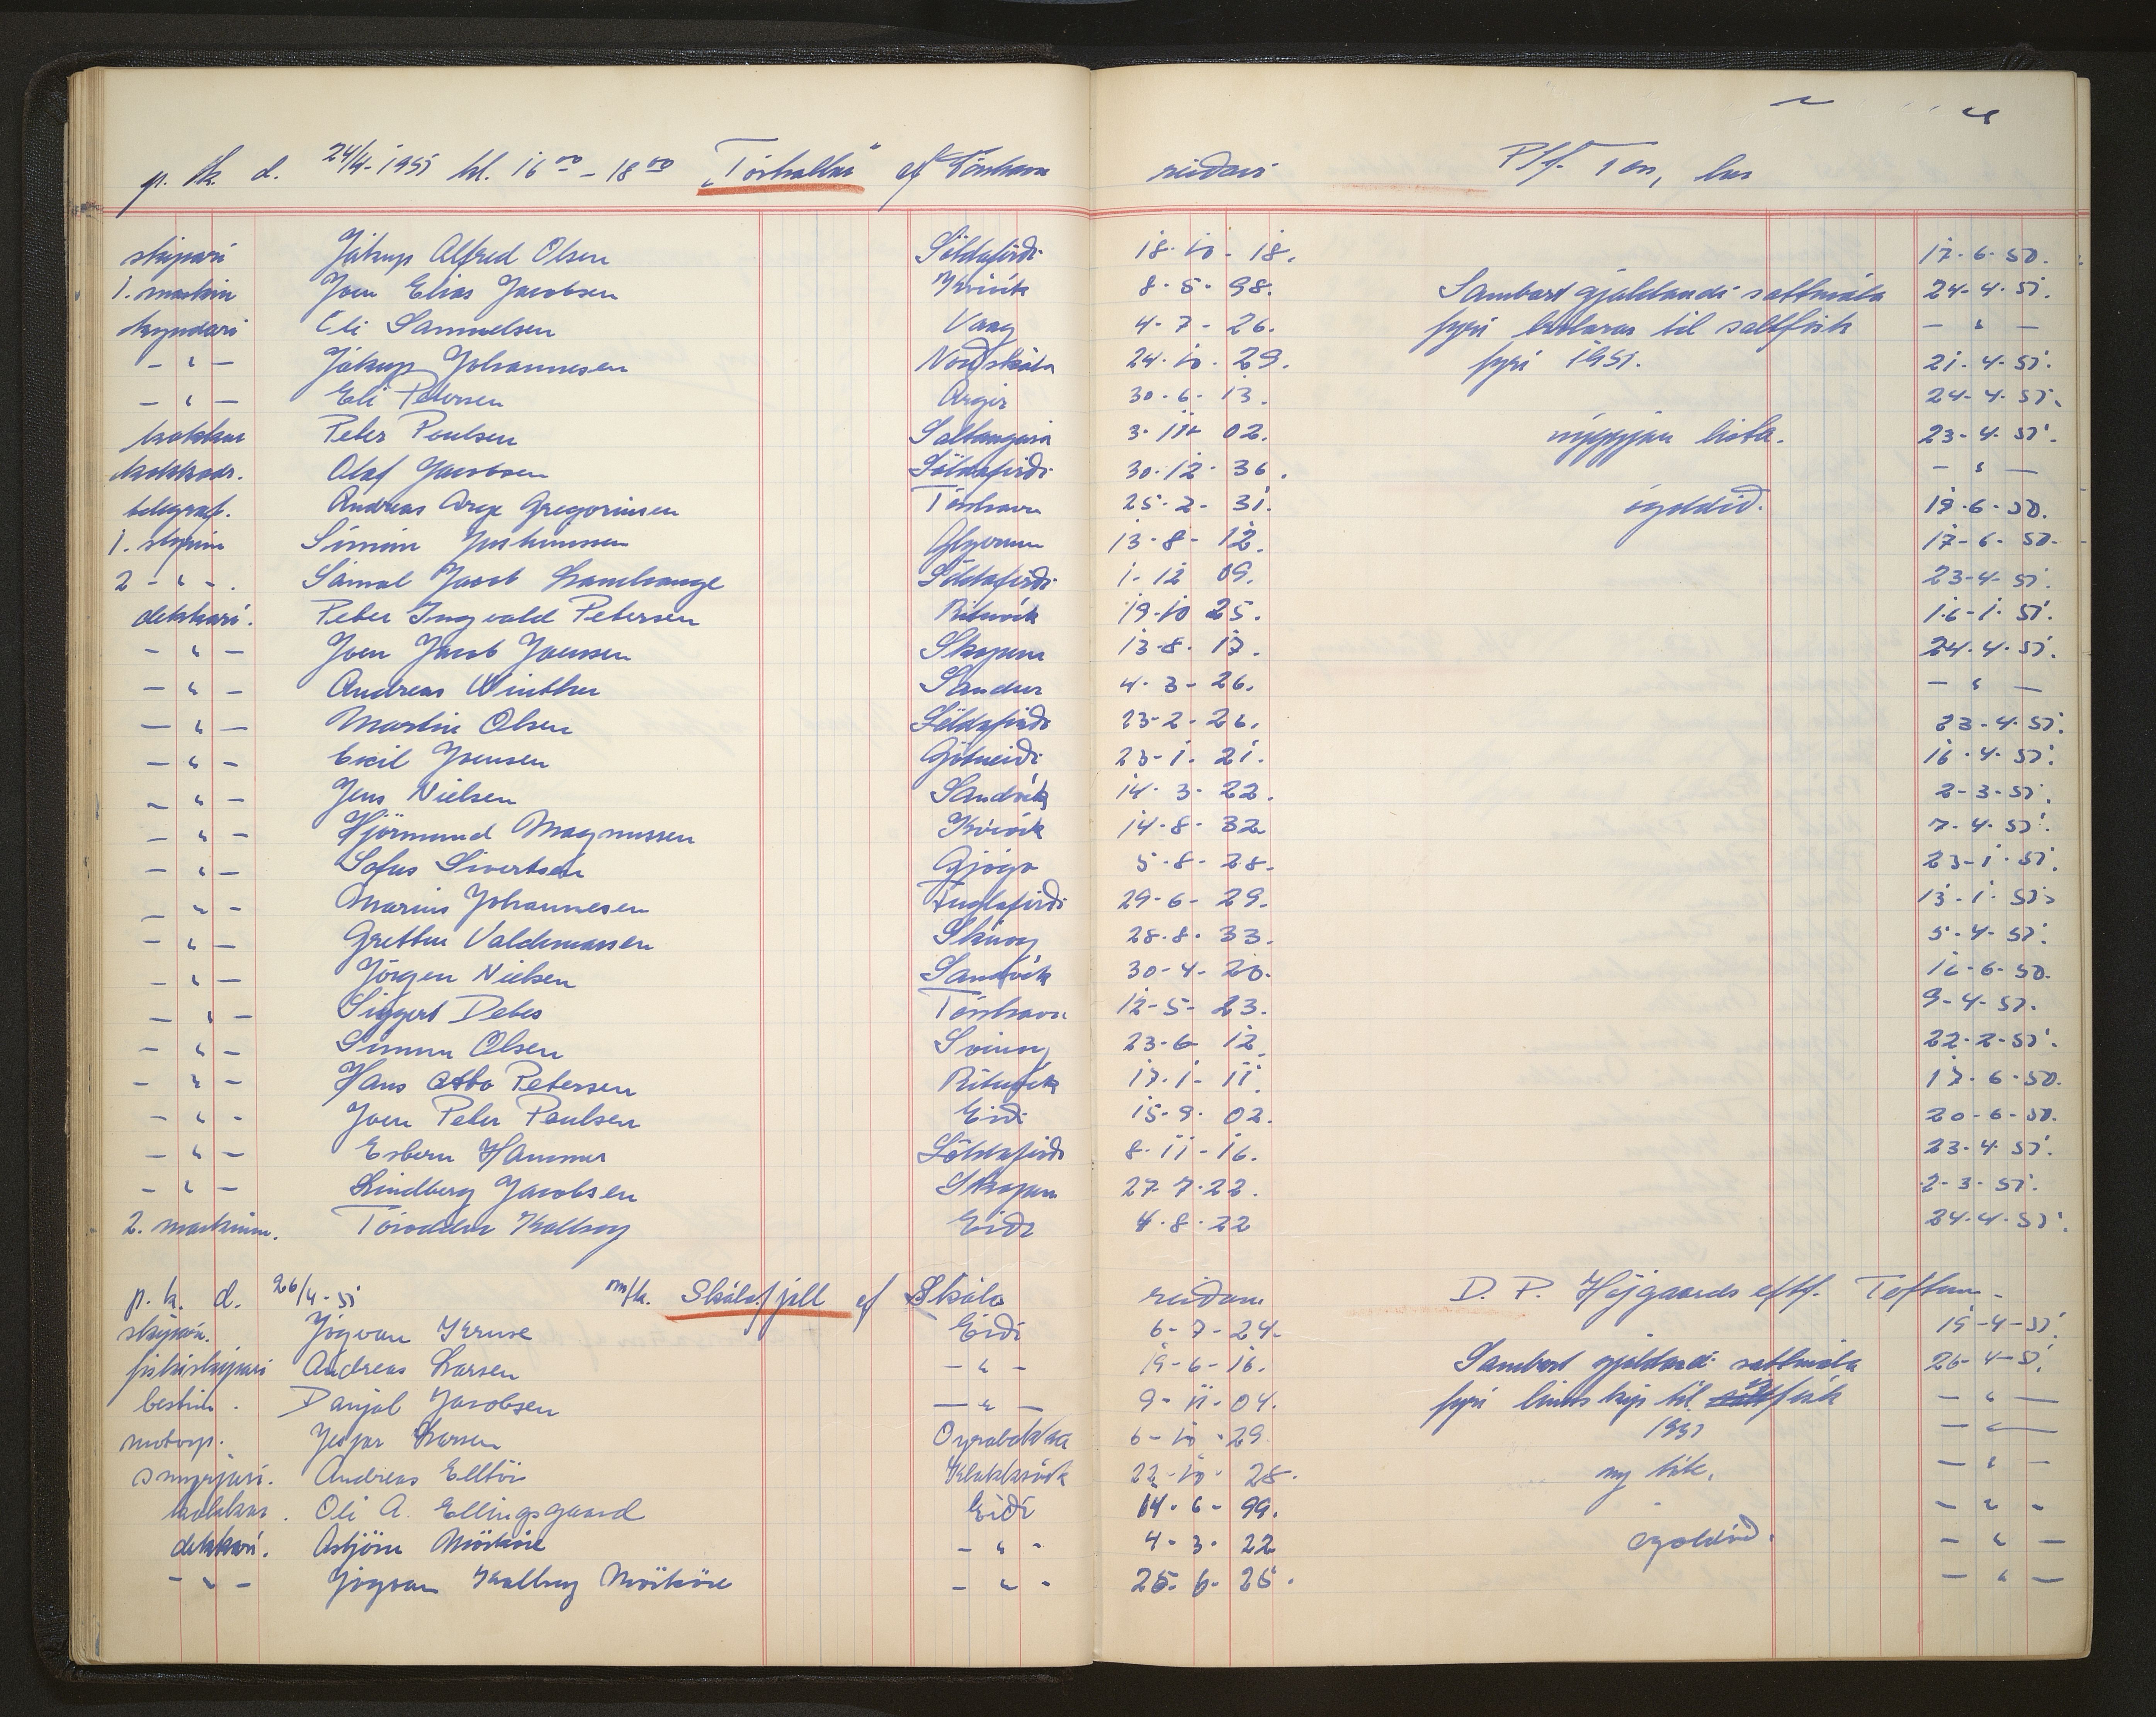 p. k. d. 24/4-1951 kl. 16 00 - 18 00 „Tórhallur" af Tórshavn reiðari P/f. Tor, her
skipari Jákup Alfred Olsen Söldafirði 18-10-18. 17-6-50.
1. maskin Joen Elias Jacobsen Kvívík 8-5-98. Sambært gjaldandi sáttmála 24-4-51.
kyndari Eli Samuelsen Vaag 4-7-26. fyri trolarar til saltfisk - " -
- " - Jákup Johannesen Norðskála 24-10-29. fyri 1951. 21-4-51.
- " - Eli Petersen Argir 30-6-13. 24-4-51.
kokkur Peter Poulsen Saltangará 3-11-02. 23-4-51.
kokkadr. Olaf Jacobsen Söldafirði 30-12-36. - " -
telegraf. Andreas Arge Gregoriussen Tórshavn 25-2-31. ógoldið. 19-6-50.
1. stýrim Símun Justinussen Glyvrum 13-8-12. 17-6-50.
2 - " - Sámal Jacob Lamhauge Söldafirði 1-12 09. 23-4-51.
dekkari. Peter Ingvald Petersen Rituvík 19-10 25. 16-1-51.
- " - Joen Jacob Joensen Skopun 13-8-17. 24-4-51.
- " - Andreas Winther Sandur 4-3-26. - " -
- " - Martin Olsen Söldafirði 23-2-26. 23-4-51.
- " - Emil Joensen Götueiði 23-1-21. 16-4-51.
- " - Jens Nielsen Sandvík 14-3-22. 2-3-51.
- " - Hjörmund Magnussen Kvívík 14-8-32 7-4-51.
- " - Sofus Sivertsen Gjógv 5-8-28. 23-1-51.
- " - Marius Johannesen Fuglafirði 29-6-29. 13-1-51
- " - Grettur Valdemarsen Skúvoy 28-8-33. 5-4-51.
- " - Jörgen Nielsen Sandvík 30-4-20. 16-6-50.
- " - Siggert Debes Tórshavn 12-5-23. 9-4-51.
- " - Simun Olsen Svinoy 23-6 12. 22-2-51.
- " - Hans Otto Petersen Rituvík 17-1-11. 17-6-50.
- " - Joen Peter Poulsen Eiði 15-9-02. 20-6-50.
- " - Esbern Hammer Söldafirði 8-11-16. 23-4-51.
- " - Lindberg Jacobsen Skopun 27-7-22. 2-3-51.
2. maskinm. Tóroddur Kallsoy Eiði 4-8-22 24-4-51.
p. k. d. 26/4-51 m/k. Skálafjall af Skála reiðari D. P. Höjgaards eftf. Toftum-
skipari. Jógvan Kruse Eiði 6-7-24. 19-4-51.
fiskiskipari Andreas Larsen - " - 19-6-16. Sambært gjaldandi sáttmála 26-4-51.
bestim. Danjal Jacobsen - " - 9-11-04. fyri línuskip til fisk - " -
motorp. Larsen Oyrabakka 6-10-29 1951 - " -
smyrjari. Andreas Elttör Klakksvík 22-10-28. ny - " -
kokkur. Oli A. Ellingsgaard Eiði 14-6-99. - " -
dekkari. Asbjörn Mörköre - " - 4-3-22 ógoldið. - " -
- " - Jógvan Kallsoy Mörköre - " - 25-6-25. - " -